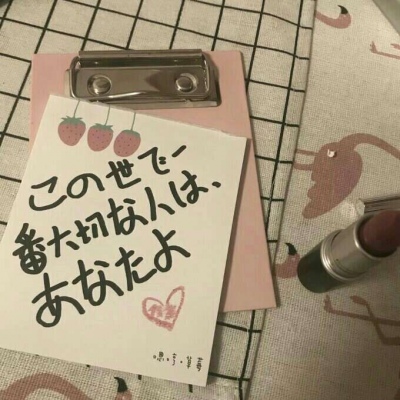 この世で一
番大切な人は、
あなたよ